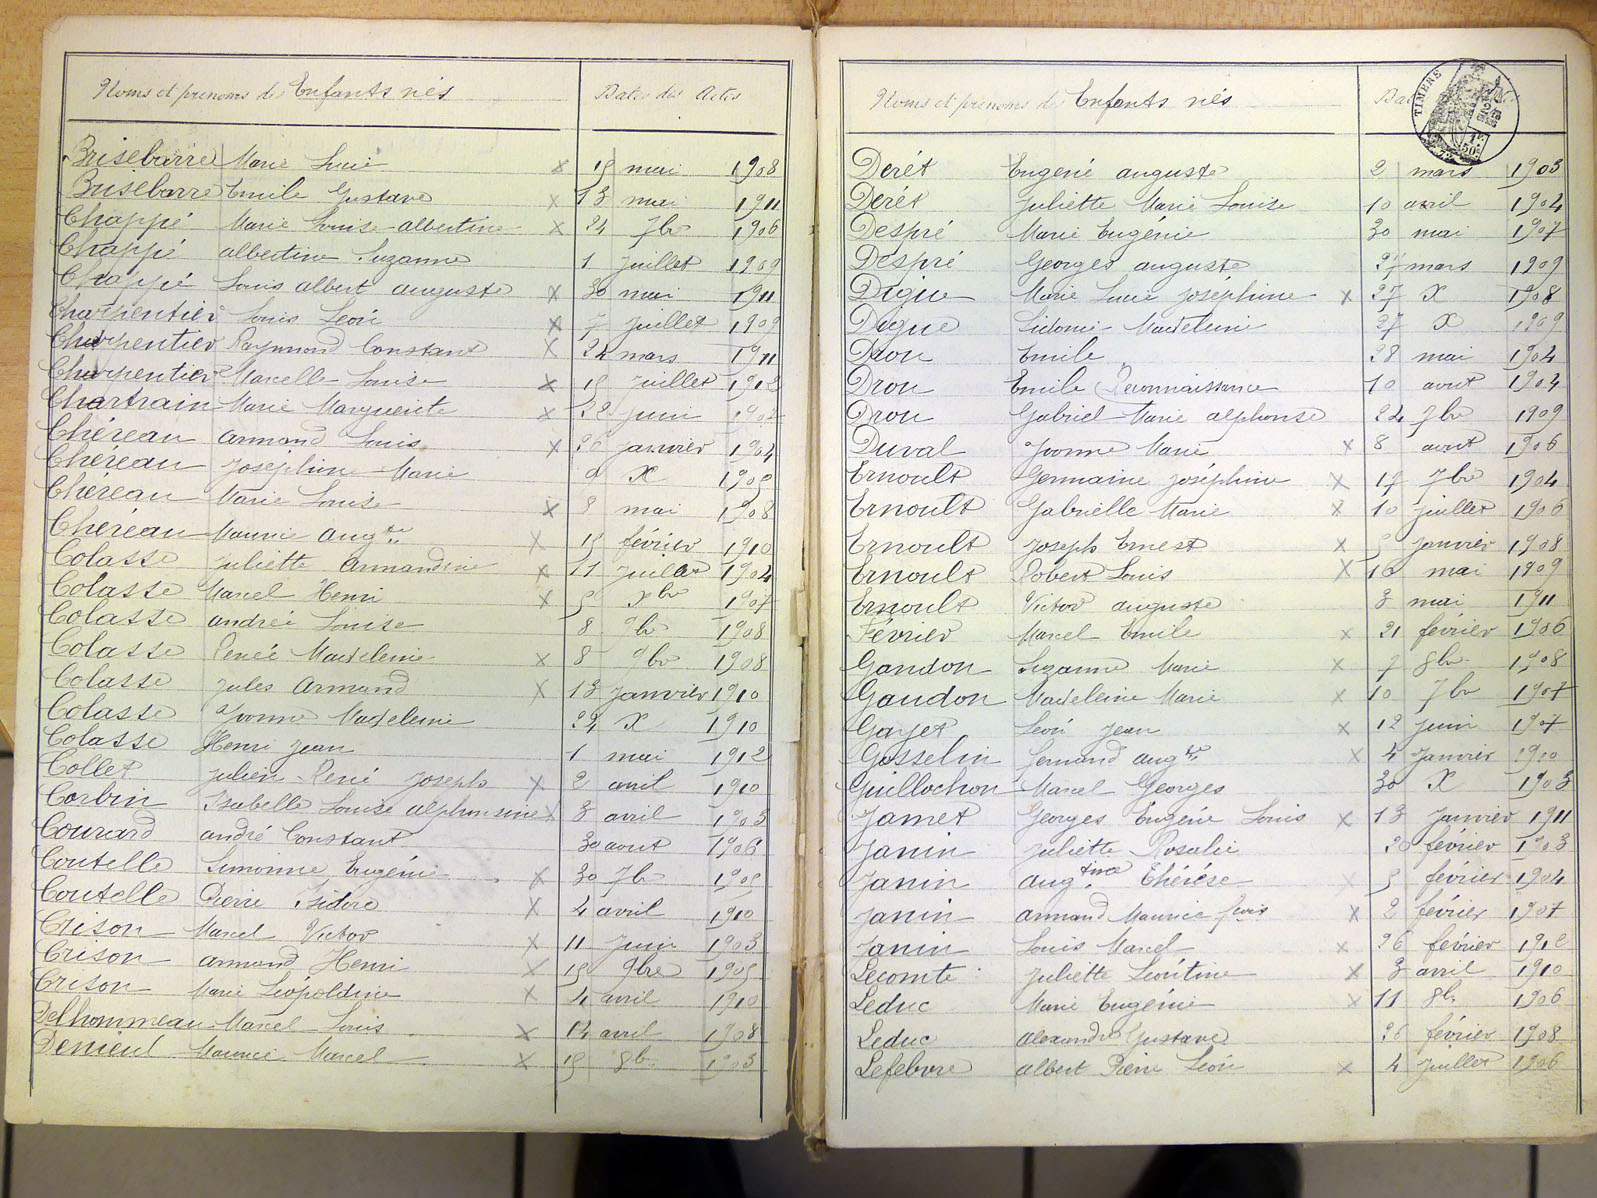 Noms et prénoms d. Enfants nés Dates des Actes
Brisebarre Marie Lucie x 15 mai 1908
Brisebarre Emile Gustave x 13 mai 1911
Chappé Marie Louise albertine x 24 7br 1906
Chappé albertine Suzanne 1 Juillet 1909
Chappé Louis albert auguste x 30 mai 1911
Charpentier Louis Léon x 7 Juillet 1909
Charpentier Raymond Constant x 24 mars 1911
Charpentier Marcelle Louise x 15 Juillet 1912
Chartrain Marie Marguerite x 22 Juin
Chéreau armand Louis x 26 Janvier 1904
Chéreau Joséphine Marie 9 X 1905
Chéreau Marie Louise x 8 mai 1908
Chéreau Maurice augte x 15 février 1910
Colasse Juliette Armandine x 21 Juillet 1904
Colasse Marcel Henri x 5 Xbr 1907
Colasse andrée Louise 8 9br 1908
Colasse Renée Madeleine x 8 9br 1908
Colasse Jules Armand x 13 Janvier 1910
Colasse Yvonne Madeleine 24 X 1910
Colasse Henri Jean 1 mai 1912
Collet Julien René Joseph x 2 avril 1910
Corbin Isabelle Louise alphonsine x 3 avril 1903
Courard andré Constant 30 aout 1906
Coutelle Simonne Eugénie x 30 7br 1905
Coutelle Pierre Isidore x 4 avril 1910
Crison Marcel Victor x 11 Juin 1903
Crison armand Henri x 15 9bre 1905
Crison Marie Léopoldine x 4 avril 1910
Delhommeau Marcel Louis x 14 avril 1908
Denieul Maurice Marcel x 15 8br 1903
Noms et prénoms d. Enfants nés Dat
TIMBRE
Derét Eugené auguste 2 mars 1903
Derét Juliette Marie Louise 10 avril 1904
Despré Marie Eugénie 30 mai 1907
Despré Georges auguste 27 mars 1909
Digue Marie Lucie Joséphine x 27 X 1908
Digue Sidonie Madeleine 27 X 1909
Dron Emile 28 mai 1904
Dron Emile Reconnaissance 10 aout 1904
Dron Gabriel Marie alphonse 24 7br 1909
Duval Yvonne Marie x 8 aout 1906
Ernoult Germaine Joséphine x 17 7br 1904
Ernoult Gabrielle Marie x 10 Juillet 1906
Ernoult Joseph Ernest x 5 Janvier 1908
Ernoult Robert Louis x 16 mai 1909
Ernoult Victor auguste 3 mai 1911
Février Marcel Emile x 21 février 1906
Gandon Suzanne Marie x 7 8br 1908
Gaudon Madeleine Marie x 10 7br 1907
Gayet Léon Jean x 12 Juin 1907
Gosselin Fernand augte x 4 Janvier 1910
Guillochon Marcel Georges 30 X 1903
Jamet Georges Eugène Louis x 13 Janvier 1911
Janin Juliette Rosalie 20 février 1903
Janin augtine Thérèse x 5 février 1904
Janin armand Maurice frois x 2 février 1907
Janin Louis Marcel x 26 février 1912
Lecomte Juliette Léontine x 3 avril 1910
Leduc Marie Eugénie x 11 8br 1906
Leduc alexandre Gustave 26 février 1908
Lefebvre albert Pierre Léon x 4 Juillet 1906